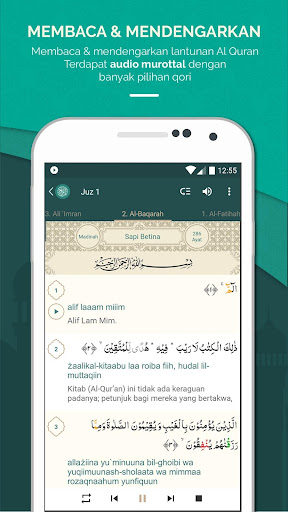 MEMBACA & MENDENGARKAN
Membaca & mendengarkan lantunan Al Quran
Terdapat audio murottal dengan
banyak pilihan qori
12:55
Juz 1
3. Ali 'Imran
2. Al-Baqarah
1. Al-Fatihah
Madinah
Sapi Betina
286
Ayat
بِسْمِ اللّٰهِ الرَّحْمٰنِ الرَّحِيْمِ
1
الۤمّۤ ۚ ﴿١﴾
alif laaam miiim
Alif Lam Mim.
2
ذٰلِكَ الْكِتٰبُ لَا رَيْبَ ۛ فِيْهِ ۛ هُدًى لِّلْمُتَّقِيْنَ ۙ ﴿٢﴾
żaalikal-kitaabu laa roiba fiih, hudal lil-
muttaqiin
Kitab (Al-Qur'an) ini tidak ada keraguan
padanya; petunjuk bagi mereka yang bertakwa,
3
الَّذِيْنَ يُؤْمِنُوْنَ بِالْغَيْبِ وَيُقِيْمُوْنَ الصَّلٰوةَ وَمِمَّا
رَزَقْنٰهُمْ يُنْفِقُوْنَ ۙ ﴿٣﴾
allażiina yu`minuuna bil-ghoibi wa
yuqiimuunash-sholaata wa mimmaa
rozaqnaahum yunfiquun